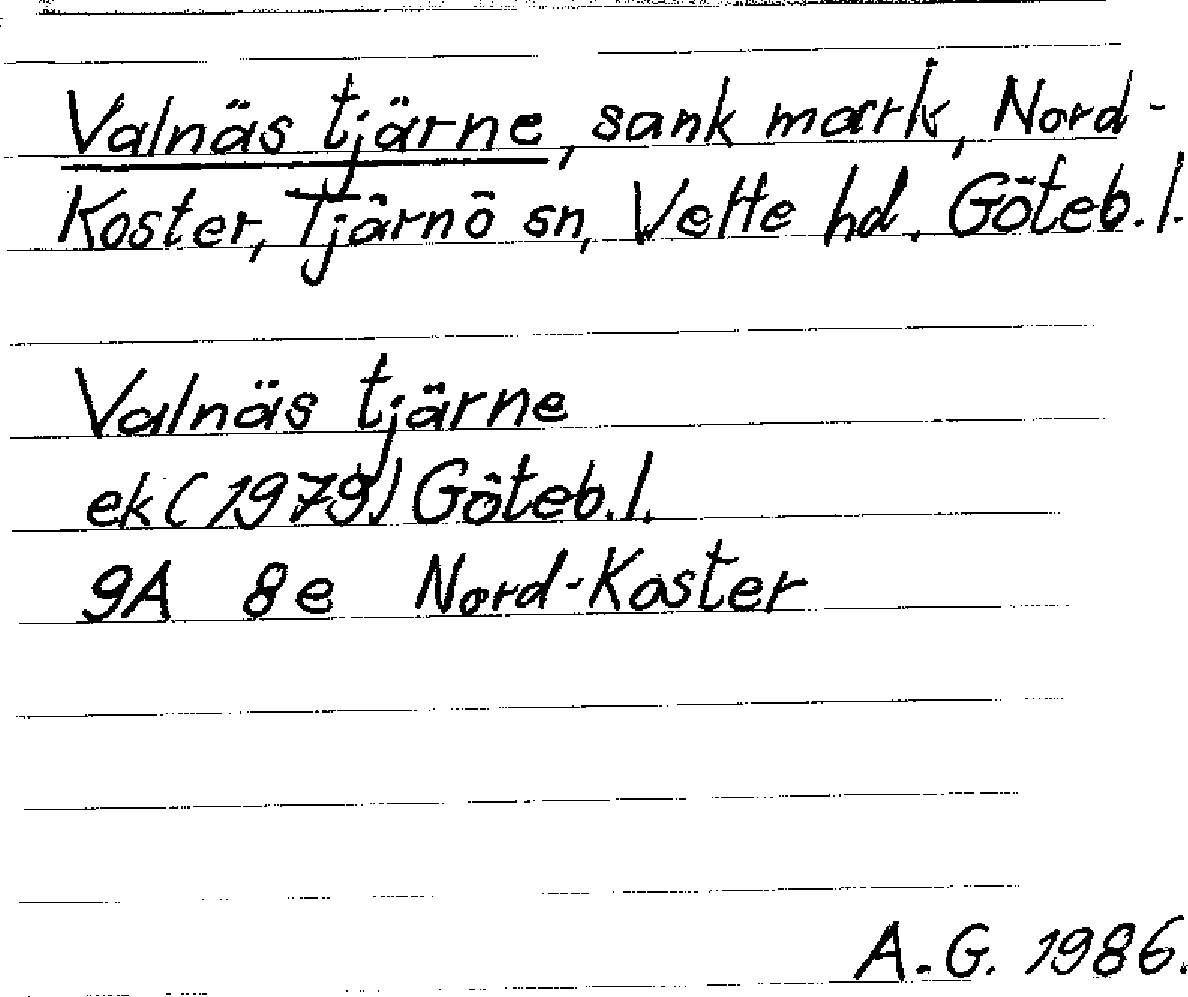 Valnäs tjärne, sank mark, Nord-
Koster, Tjärnö sn, Vette hd. Göteb. l.
Valnäs tjärne
ek (1979) Göteb. l.
9A 8e Nord-Koster
A.G. 1986.